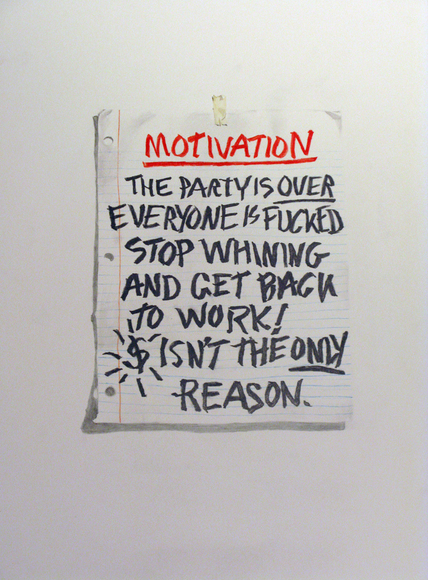 MOTIVATION
THE PARTY IS OVER
EVERYONE IS FUCKED
STOP WHINING
AND GET BACK
TO WORK!
$ ISN'T THE ONLY
REASON.